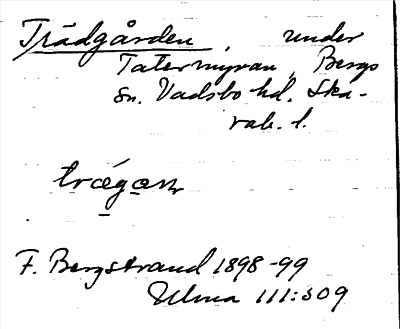 Trädgården, under
Tatermyran, Bergs
sn. Vadsbo hd. Ska-
rab. l.
trǽgan
F. Bergstrand 1898-99
Ulma 111:309